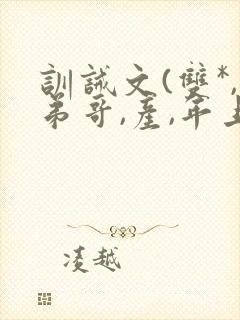 訓誡文(雙*,
弟哥,產,年上
凌越